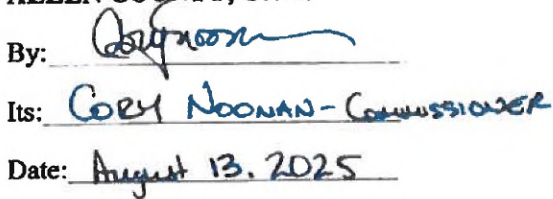 By: Cory Noonan
Its: CORY NOONAN - COMMISSIONER
Date: August 13. 2025